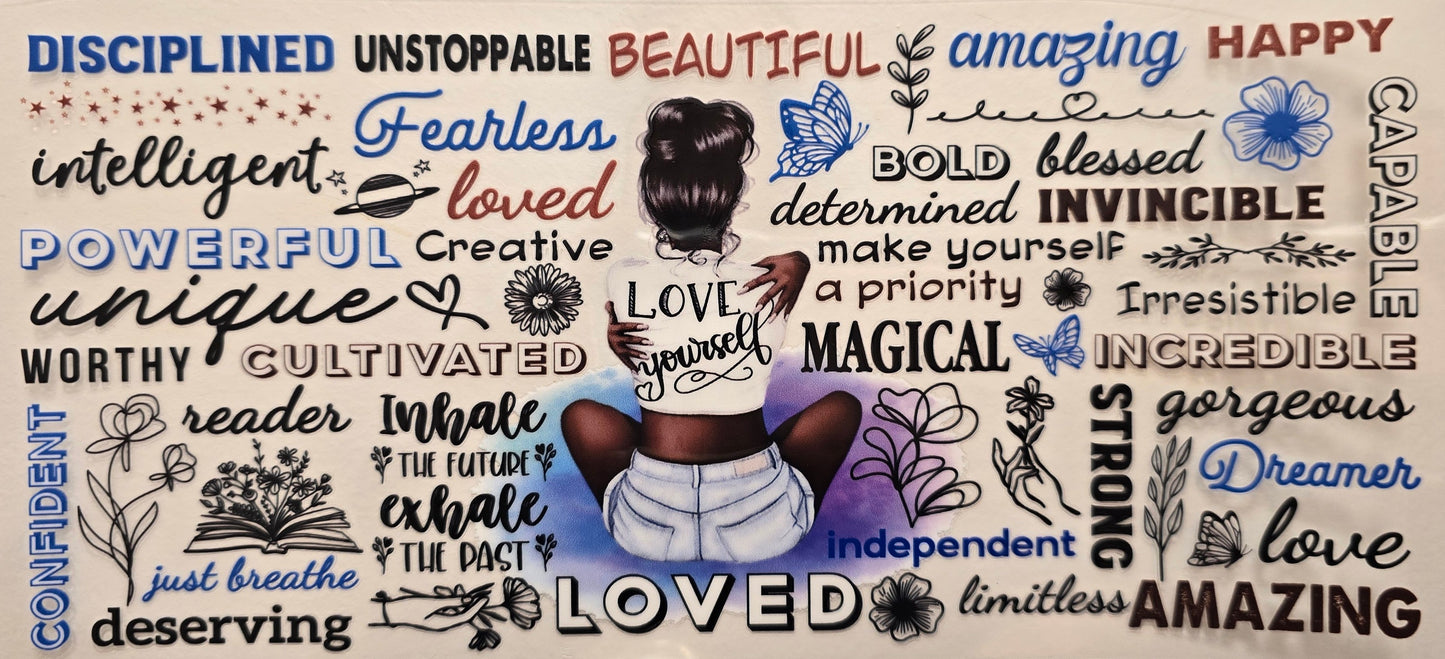 DISCIPLINED
UNSTOPPABLE
BEAUTIFUL
amazing
HAPPY
Fearless
intelligent
loved
BOLD
blessed
CAPABLE
determined
INVINCIBLE
POWERFUL
Creative
make yourself
a priority
unique
LOVE
yourself
Irresistible
WORTHY
CULTIVATED
MAGICAL
INCREDIBLE
CONFIDENT
reader
Inhale
THE FUTURE
exhale
THE PAST
STRONG
gorgeous
Dreamer
independent
love
just breathe
deserving
LOVED
limitless
AMAZING